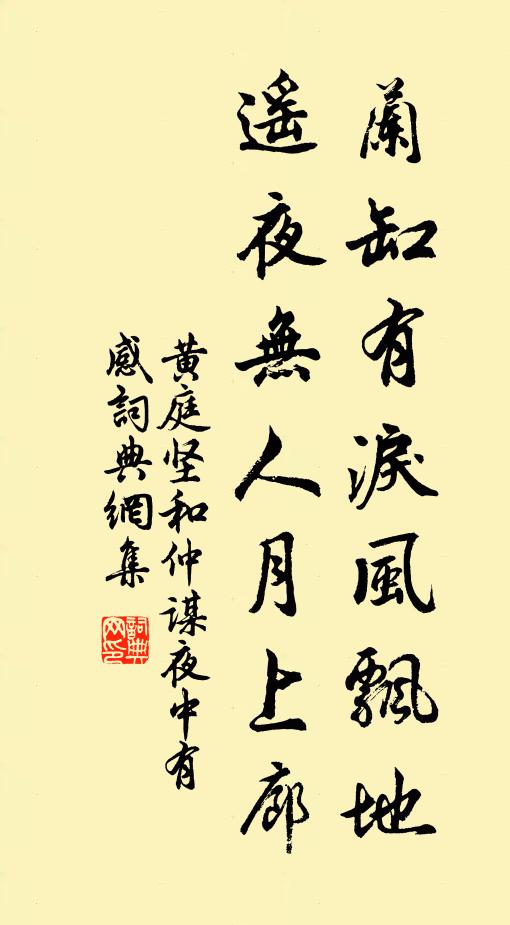 蘭缸有淚風飄地
遥夜無人月上廊
黄庭坚和仲謀夜中有
感詞典網集
詞典
网印